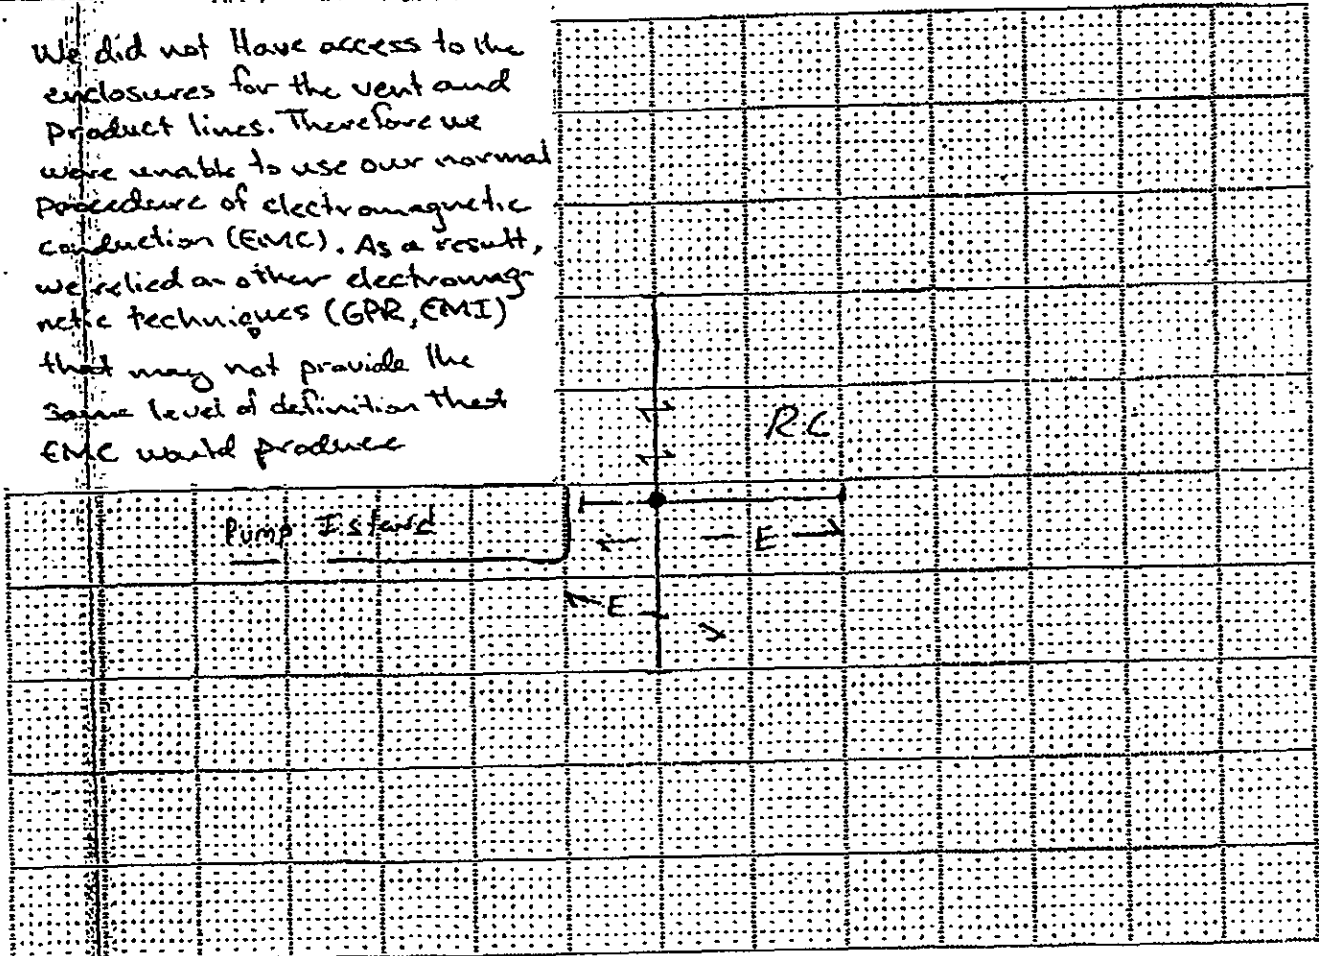 We did not Have access to the
enclosures for the vent and
product lines. Therefore we
were unable to use our normal
proceedure of electromagnetic
conduction (EMC). As a result,
we relied on other electromag-
netic techniques (GPR, EMI)
that may not provide the
same level of definition that
EMC would produce
RC
Pump Island
E
E